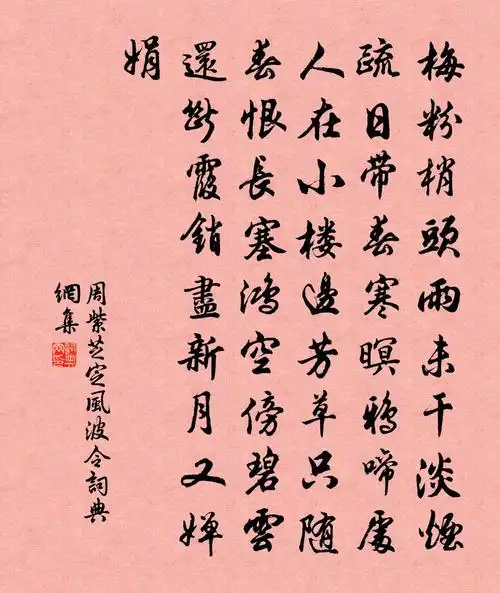 梅粉梢頭雨未干淡煙
疏日帶春寒暝鴉啼處
人在小楼邊芳草只随
春恨長塞鴻空傍碧雲
還斷霞銷盡新月又嬋
娟
周紫芝定風波令詞典
網集